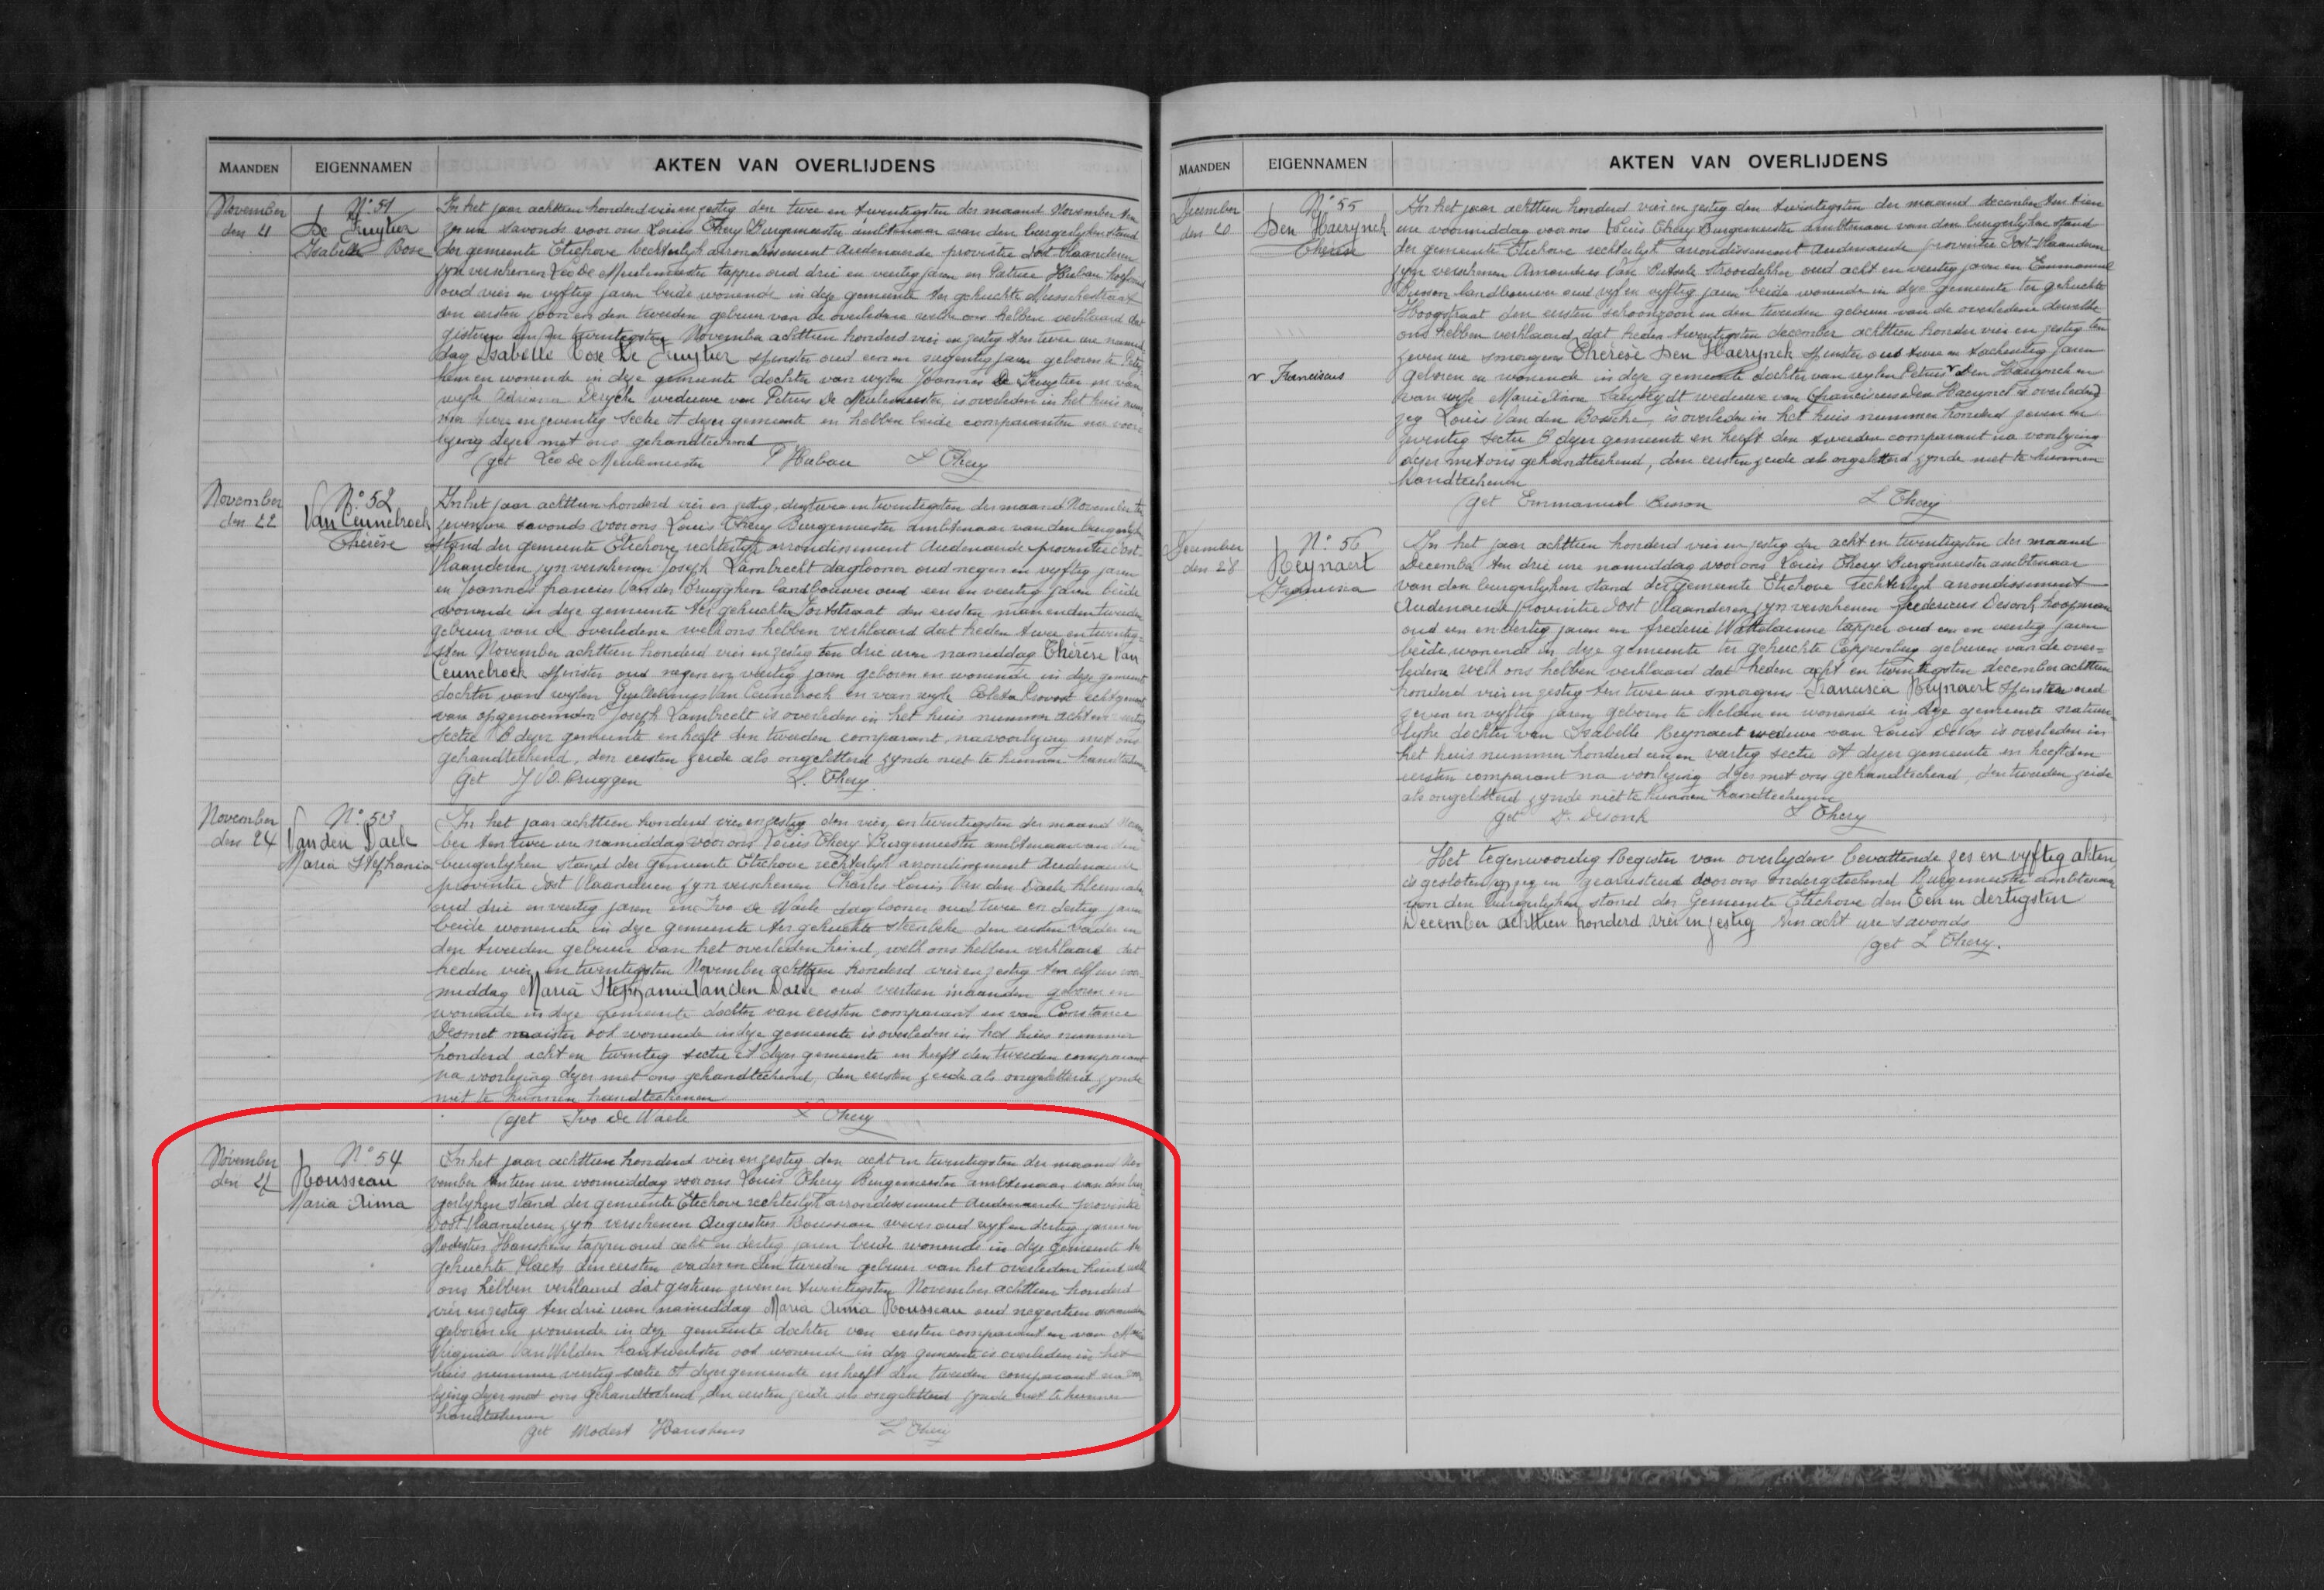 MAANDEN EIGENNAMEN AKTEN VAN OVERLIJDENS
November den 21
N° 51
De Isabelle Rose
In het jaar achttien honderd vier en zestig den twee en twintigsten der maand November ten
zes ure savonds voor ons Louis Thery Burgemeester ambtenaar van den burgerlyken stand
der gemeente Etichove rechterlyk arrondissement Audenaerde provintie Oost Vlaanderen
zyn verschenen Leo De Meulemeester tapper oud drie en veertig jaren en
oud vier en vyftig jaren beide wonende in deze gemeente ter gehuchte
den eersten zoon en den tweeden gebuur van de overledene welke ons hebben verklaard dat
gisteren een en twintigsten November achttien honderd vier en zestig ten twee ure namid
dag Isabelle Rose De spinster oud een en negentig jaren geboren te
en wonende in deze gemeente dochter van wylen Joannes De en van
wyle Adriana weduwe van Petrus De Meulemeester, is overleden in het huis
twee en zeventig sectie A dezer gemeente en hebben beide comparanten na voor
lezing dezer met ons gehandteekend
(get Leo De Meulemeester P L Thery
November den 22
N° 52
Van Ceunebroek
Thérèse
In het jaar achttien honderd vier en zestig, den twee en twintigsten der maand November ten
zeven ure savonds voor ons Louis Thery Burgemeester ambtenaar van den burgerlyken
stand der gemeente Etichove rechterlyk arrondissement Audenaerde provintie Oost
Vlaanderen zyn verschenen Joseph Lambrecht daglooner oud negen en vyftig jaren
en Joannes francies Van der Brugghen landbouwer oud een en veertig jaren beide
wonende in deze gemeente ter gehuchte den eersten man en den tweeden
gebuur van de overledene welk ons hebben verklaard dat heden twee en twintig
sten November achttien honderd vier en zestig ten drie uren namiddag Thérèse Van
Ceunebroek spinster oud negen en veertig jaren geboren en wonende in deze gemeente
dochter van wylen Guillelmus Van Ceunebroek en van wyle Coleta Provost echtgenoote
van opgenoemden Joseph Lambrecht is overleden in het huis nummer acht en veertig
sectie B dezer gemeente en heeft den tweeden comparant, na voorlezing met ons
gehandteekend, den eersten zeide als ongeletterd zynde niet te kunnen handteekenen
Get J V D. Bruggen L. Thery
November den 24
N° 53
Van den Daele
Maria Stephania
In het jaar achttien honderd vier en zestig den vier en twintigsten der maand Novem
ber ten twee ure namiddag voor ons Louis Thery Burgemeester ambtenaar van den
burgerlyken stand der gemeente Etichove rechterlyk arrondissement Audenaerde
provintie Oost Vlaanderen zyn verschenen Charles Louis Van den Daele
oud drie en veertig jaren en Ivo De Waele daglooner oud twee en dertig jaren
beide wonende in deze gemeente ter gehuchte den eersten vader en
den tweeden gebuur van het overleden kind, welk ons hebben verklaard dat
heden vier en twintigsten November achttien honderd vier en zestig ten elf ure voor
middag Maria Stephania Van den Daele oud veertien maanden geboren en
wonende in deze gemeente dochter van eersten comparant en van Constance
Desmet naaister ook wonende in deze gemeente is overleden in het huis nummer
honderd acht en twintig sectie A dezer gemeente en heeft den tweeden comparant
na voorlezing dezer met ons gehandteekend, den eersten zeide als ongeletterd zynde
niet te kunnen handteekenen
(get Ivo De Waele L Thery
November den 27
N° 54
Rousseau
Maria Anna
In het jaar achttien honderd vier en zestig den acht en twintigsten der maand No
vember ten tien ure voormiddag voor ons Louis Thery Burgemeester ambtenaar van den bur
gerlyken stand der gemeente Etichove rechterlyk arrondissement Audenaerde provintie
Oost Vlaanderen zyn verschenen Augustus Rousseau wever oud vyf en dertig jaren en
Modestus Hanskens tapper oud acht en dertig jaren beide wonende in deze gemeente ter
gehuchte Plaets den eersten vader en den tweeden gebuur van het overleden kind welk
ons hebben verklaard dat gisteren zeven en twintigsten November achttien honderd
vier en zestig ten drie uren namiddag Maria Anna Rousseau oud negentien maanden
geboren en wonende in deze gemeente dochter van eersten comparant en van Maria
Virginia Van Welden kantwerkster ook wonende in deze gemeente is overleden in het
huis nummer veertig sectie A dezer gemeente en heeft den tweeden comparant na voor
lezing dezer met ons gehandteekend, den eersten zeide als ongeletterd zynde niet te kunnen
handteekenen
get Modest Hanskens L Thery
MAANDEN EIGENNAMEN AKTEN VAN OVERLIJDENS
December den 20
N° 55
Den Haerynck
Thérèse
In het jaar achttien honderd vier en zestig den twintigsten der maand december ten tien
ure voormiddag voor ons Louis Thery Burgemeester ambtenaar van den burgerlyken stand
der gemeente Etichove rechterlyk arrondissement Audenaerde provintie Oost Vlaanderen
zyn verschenen Amandus Van strooidekker oud acht en veertig jaren en Emmanuel
landbouwer oud vyf en vyftig jaren beide wonende in deze gemeente ter gehuchte
Hoogstraat den eersten schoonzoon en den tweeden gebuur van de overledene dewelke
ons hebben verklaard dat heden twintigsten december achttien honderd vier en zestig ten
zeven ure smorgens Thérèse Den Haerynck spinster oud twee en tachentig jaren
geboren en wonende in deze gemeente dochter van wylen Petrus v Den Haerynck en
van wyle Marie weduwe van Franciscus Den Haerynck is overleden
zeg Louis Van den Bossche, is overleden in het huis nummer honderd zeven en
zeventig sectie B dezer gemeente en heeft den tweeden comparant na voorlezing
dezer met ons gehandteekend, den eersten zeide als ongeletterd zynde niet te kunnen
handteekenen
(get Emmanuel L Thery
v Franciscus
December den 28
N° 56
Reynaert
Francisca
In het jaar achttien honderd vier en zestig den acht en twintigsten der maand
December ten drie ure namiddag voor ons Louis Thery Burgemeester ambtenaar
van den burgerlyken stand der gemeente Etichove rechterlyk arrondissement
Audenaerde provintie Oost Vlaanderen zyn verschenen fredericus Desonk koopman
oud een en dertig jaren en frederic tapper oud een en veertig jaren
beide wonende in deze gemeente ter gehuchte Coppenberg gebuuren van de over=
ledene welk ons hebben verklaard dat heden acht en twintigsten december achttien
honderd vier en zestig ten twee ure smorgens Francisca Reynaert spinster oud
zeven en vyftig jaren geboren te Melden en wonende in deze gemeente natuur
lyke dochter van Isabelle Reynaert weduwe van Louis is overleden in
het huis nummer honderd een en veertig sectie A dezer gemeente en heeft den
eersten comparant na voorlezing dezer met ons gehandteekend, den tweeden zeide
als ongeletterd zynde niet te kunnen handteekenen
get D. Desonk L Thery
Het tegenwoordig Register van overlydens bevattende zes en vyftig akten
is gesloten en gearresteerd door ons ondergeteekend Burgemeester ambtenaar
van den burgerlyken stand der Gemeente Etichove den Een en dertigsten
December achttien honderd vier en zestig ten acht ure savonds
(get L Thery.